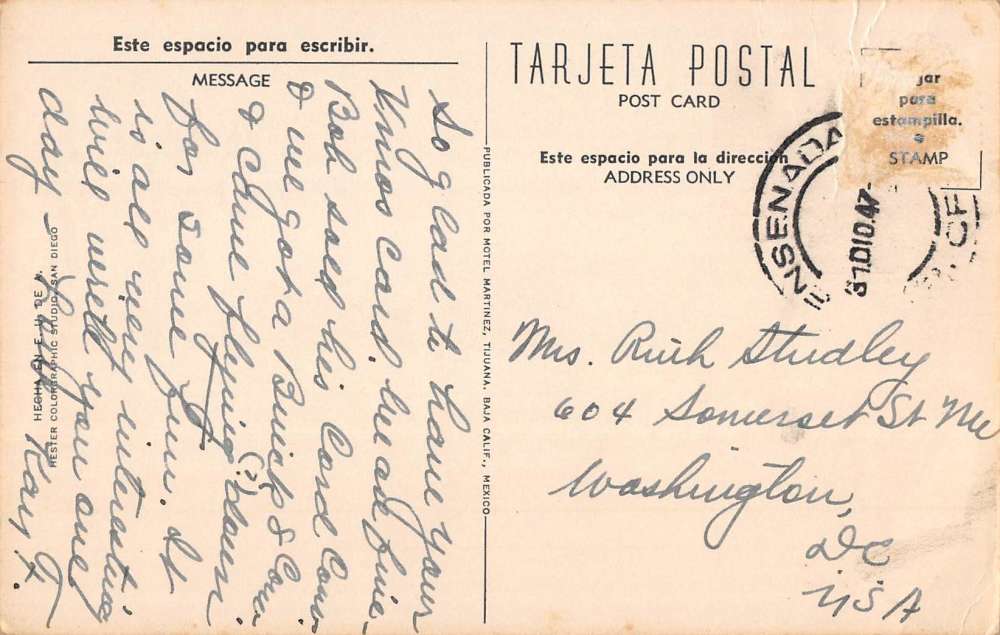 Este espacio para escribir.
MESSAGE
So glad to have your
Xmas card. We are fine.
Bob sold his Cord Conv.
& we got a Buick Conv.
& came flying (?) down
for some fun. It
is all very interesting
will write you one
day —
Kay F.
HECHA EN E. U. DE A.
HESTER COLORGRAPHIC STUDIO, SAN DIEGO
PUBLICADA POR MOTEL MARTINEZ, TIJUANA, BAJA CALIF., MEXICO
TARJETA POSTAL
POST CARD
Este espacio para la dirección
ADDRESS ONLY
para
estampilla.
STAMP
ENSENADA
31.DIO.47
Mrs. Ruth Studley
604 Somerset St NW
Washington,
DC
USA